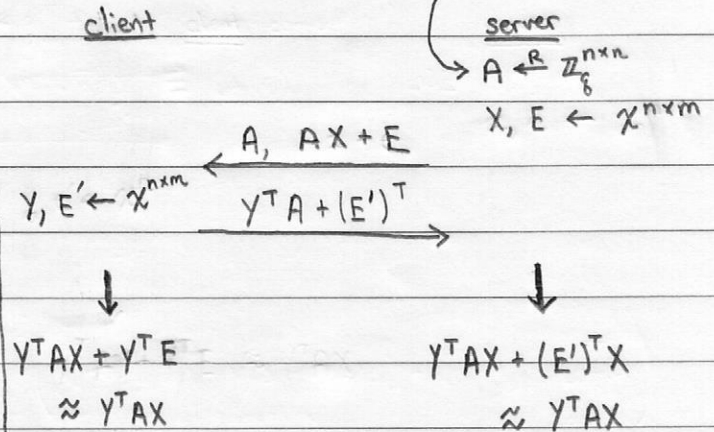 client
server
A ←R ℤ_q^{n×n}
X, E ← χ^{n×m}
A, AX + E
Y, E′ ← χ^{n×m}
Yᵀ A + (E′)ᵀ
YᵀAX + YᵀE
≈ YᵀAX
YᵀAX + (E′)ᵀX
≈ YᵀAX